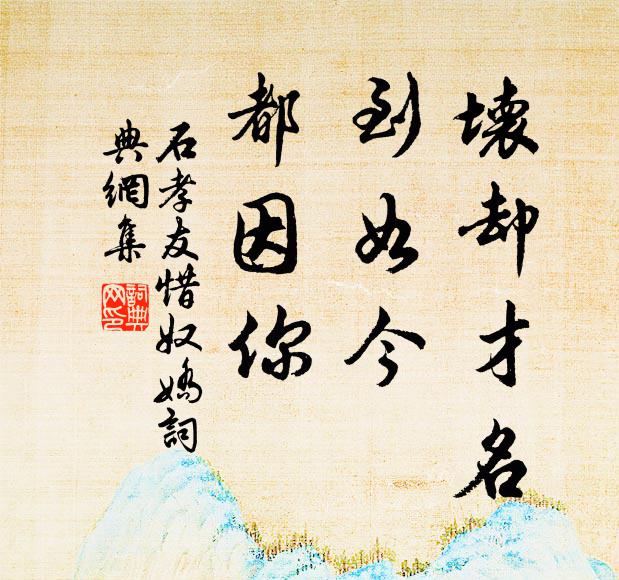 壞却才名
到如今
都因你
石孝友惜奴嬌詞
典網集
詞典網印